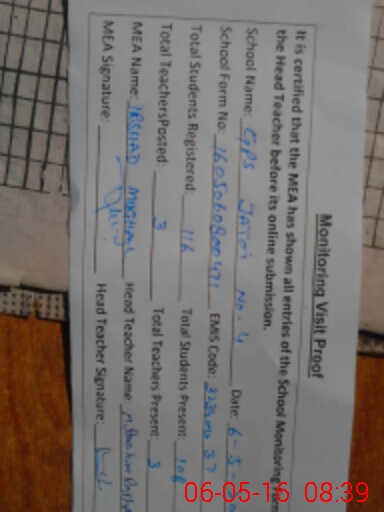 Monitoring Visit Proof
It is certified that the MEA has shown all entries of the School Monitoring Form
the Head Teacher before its online submission.
School Name: GPS JATOI No. 4 Date: 6-5-
School Form No: EMIS Code:
Total Students Registered: 116 Total Students Present: 108
Total TeachersPosted: 3 Total Teachers Present: 3
MEA Name: IRSHAD MUGHAL Head Teacher Name:
MEA Signature: Head Teacher Signature:
06-05-16 08:39